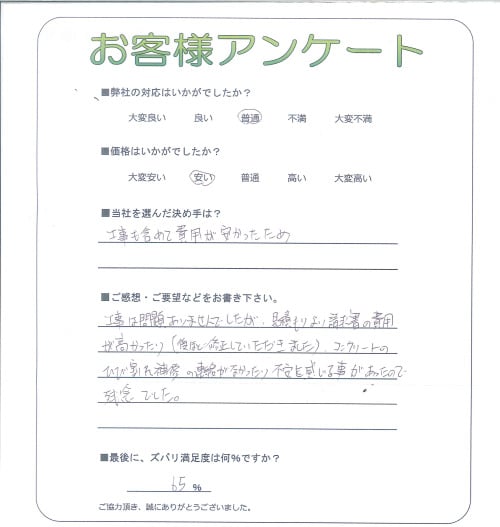 お客様アンケート
■弊社の対応はいかがでしたか？
大変良い 良い 普通 不満 大変不満
■価格はいかがでしたか？
大変安い 安い 普通 高い 大変高い
■当社を選んだ決め手は？
工事も含めて費用が安かったため
■ご感想・ご要望などをお書き下さい。
工事は問題ありませんでしたが、見積もりより請求書の費用
が高かったり(後ほど修正していただきました)、コンクリートの
ひび割れ補修の連絡がなかったり不安を感じる事があったので
残念でした。
■最後に、ズバリ満足度は何%ですか？
65 %
ご協力頂き、誠にありがとうございました。